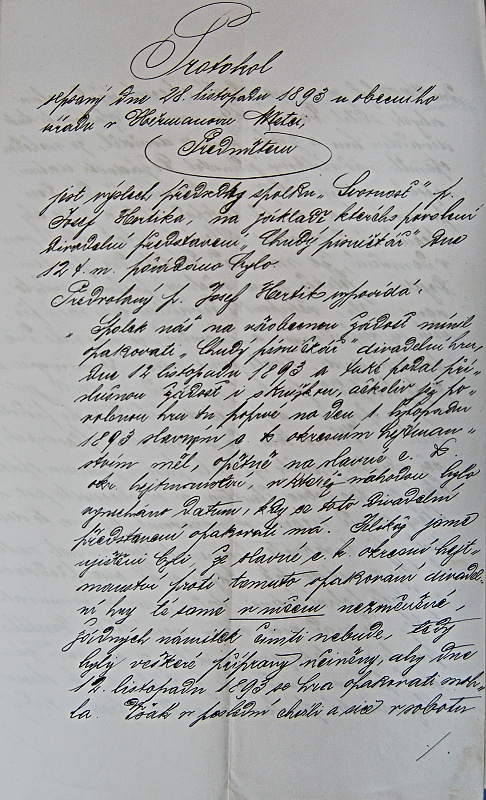 Protokol
sepsaný dne 28. listopadu 1893 u obecního
úřadu v Heřmanovu Městci,
Předmětem
jest výslech předsedy spolku „Svornost" p.
Josef Hertika, na základě kterého povolení
divadelní představení „Chudý písničkář" dne
12 t. m. pořádáno bylo.
Předvolaný p. Josef Hertik vypovídá:
„Spolek náš na všeobecnou žádost mínil
opakovati „Chudý písničkář" divadelní hru,
dne 12 listopadu 1893 a též podal pří-
slušnou žádost i s knížkou, ačkoliv již po-
volenou hru tu poprvé na den 1. listopadu
1893 slavným c. k. okresním hejtman-
stvím měl, opětně na slavné c. k.
okr. hejtmanství, v které náhodou bylo
vynecháno datum, kdy se toto divadelní
představení opakovati má. Jelikož jsme
ujištěni byli, že slavné c. k. okresní hejt-
manství proti tomuto opakování divadel-
ní hry té samé v ničem nezměněné,
žádných námitek činiti nebude, tedy
byly veškeré přípravy učiněny, aby dne
12. listopadu 1893 se hra opakovati moh-
la. Však v poslední chvíli a sice v sobotu
./.